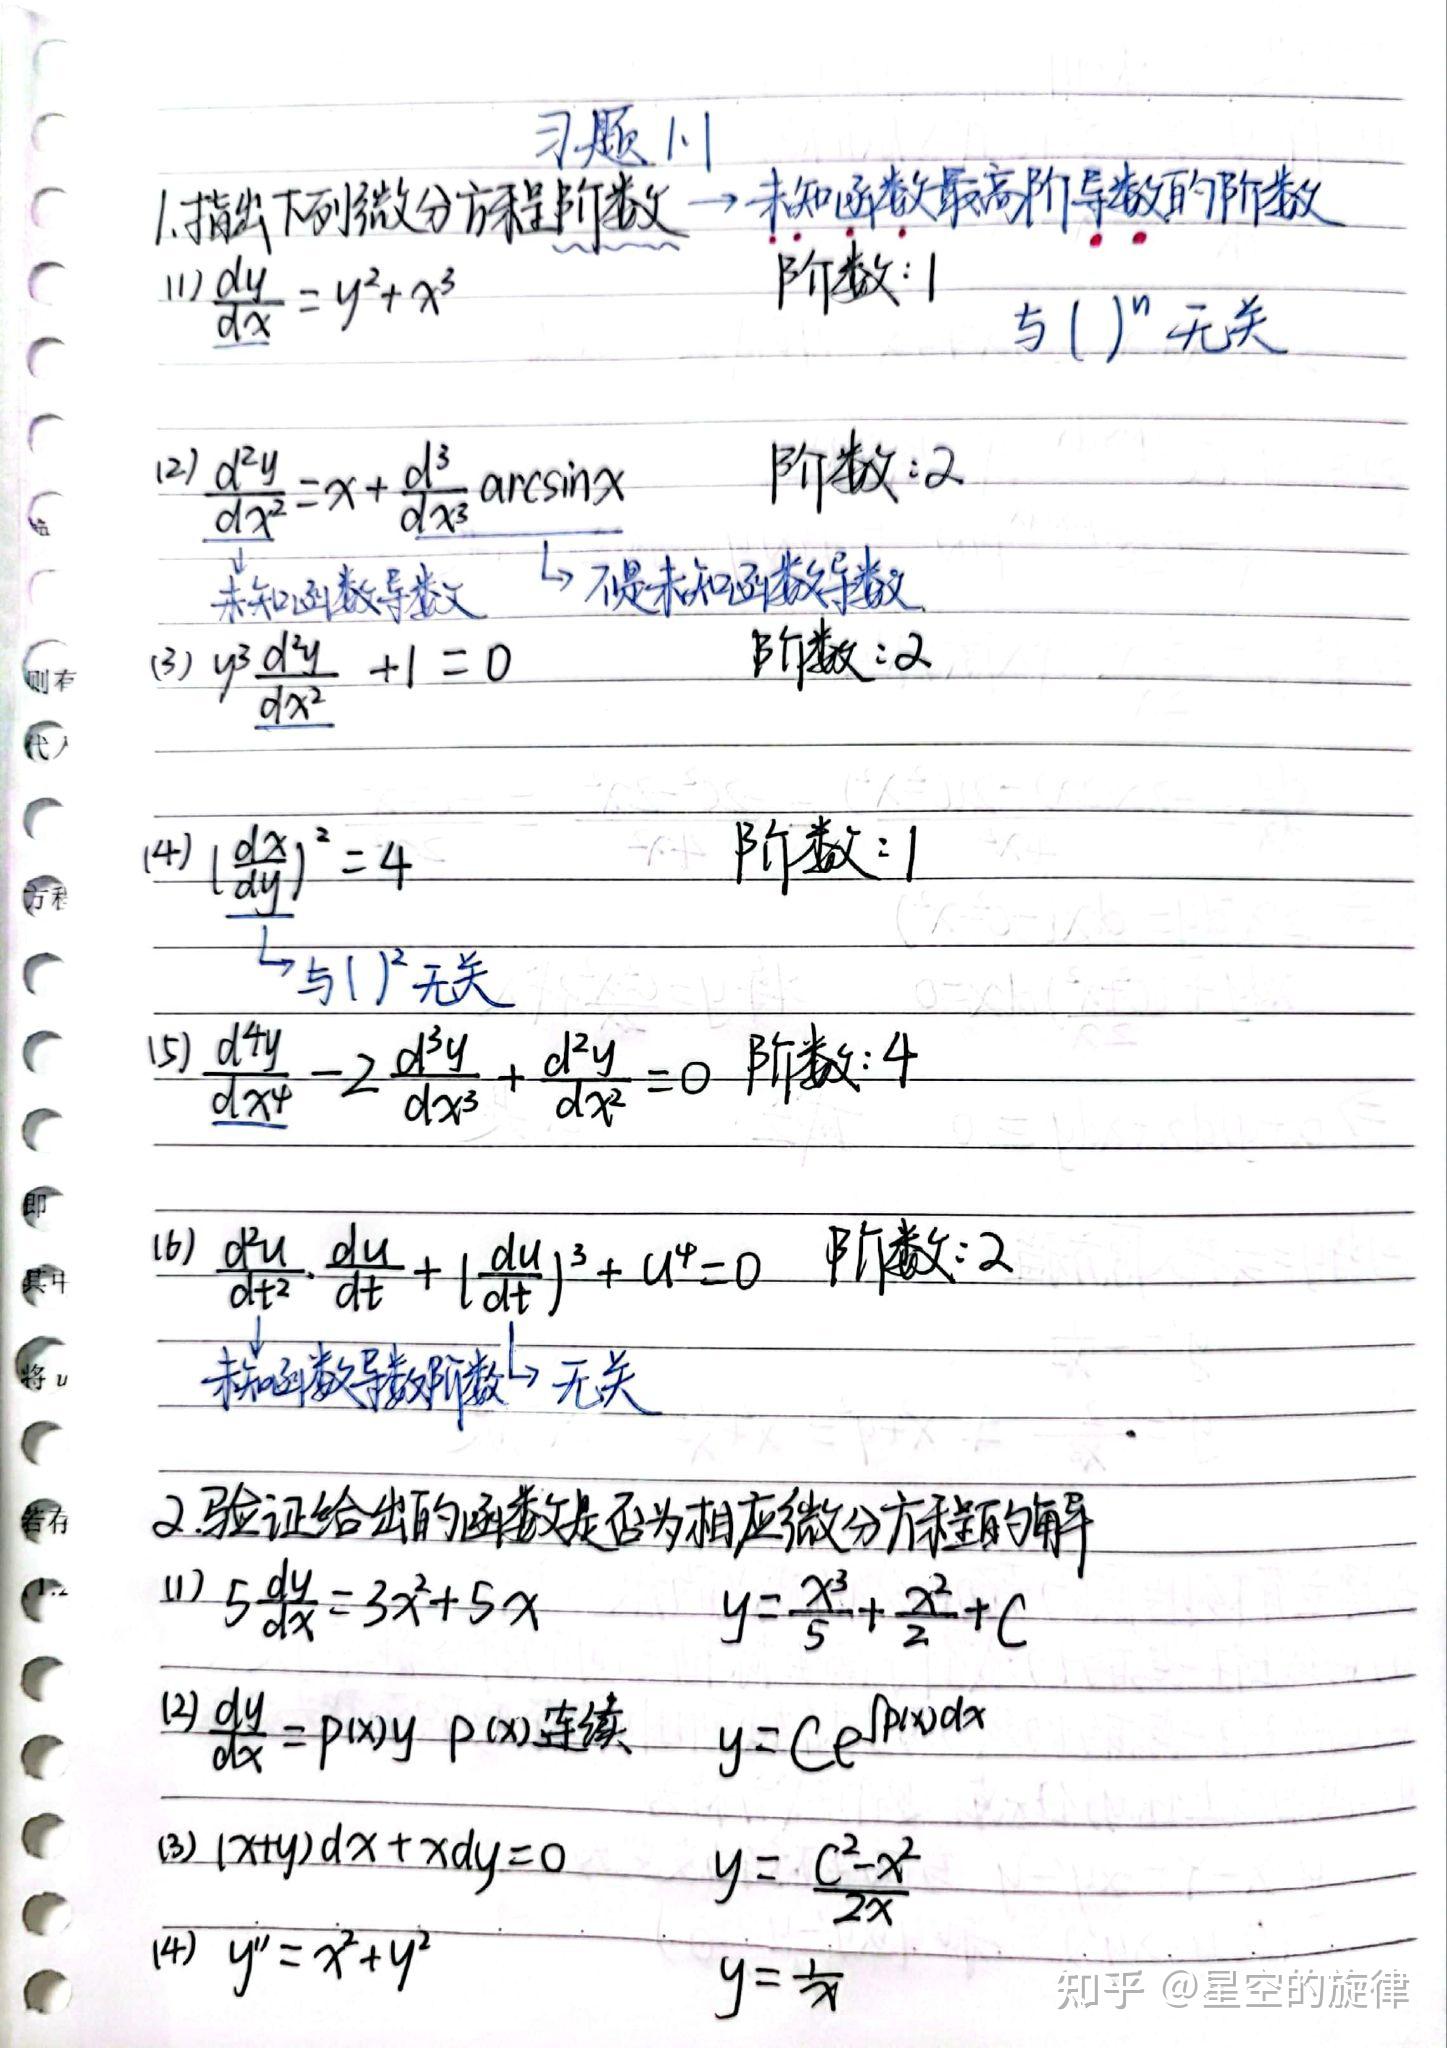 习题1.1
1.指出下列微分方程阶数 → 未知函数最高阶导数的阶数
(1) dy/dx = y²+x³ 阶数:1
与( )ⁿ无关
(2) d²y/dx² = x + d³/dx³ arcsinx 阶数:2
未知函数导数 不是未知函数导数
(3) y³ d²y/dx² +1=0 阶数:2
(4) (dx/dy)² = 4 阶数:1
与( )²无关
(5) d⁴y/dx⁴ - 2 d³y/dx³ + d²y/dx² = 0 阶数:4
(6) d²u/dt² · du/dt + (du/dt)³ + u⁴ = 0 阶数:2
未知函数导数阶数 无关
2.验证给出的函数是否为相应微分方程的解
(1) 5 dy/dx = 3x²+5x y = x³/5 + x²/2 + C
(2) dy/dx = p(x)y p(x)连续 y = Ce^∫p(x)dx
(3) (x+y)dx+xdy=0 y = (C²-x²)/2x
(4) y'' = x²+y² y = 1/x
则有
代入
方程
即
其中
将u
若存
1.2
知乎 @星空的旋律